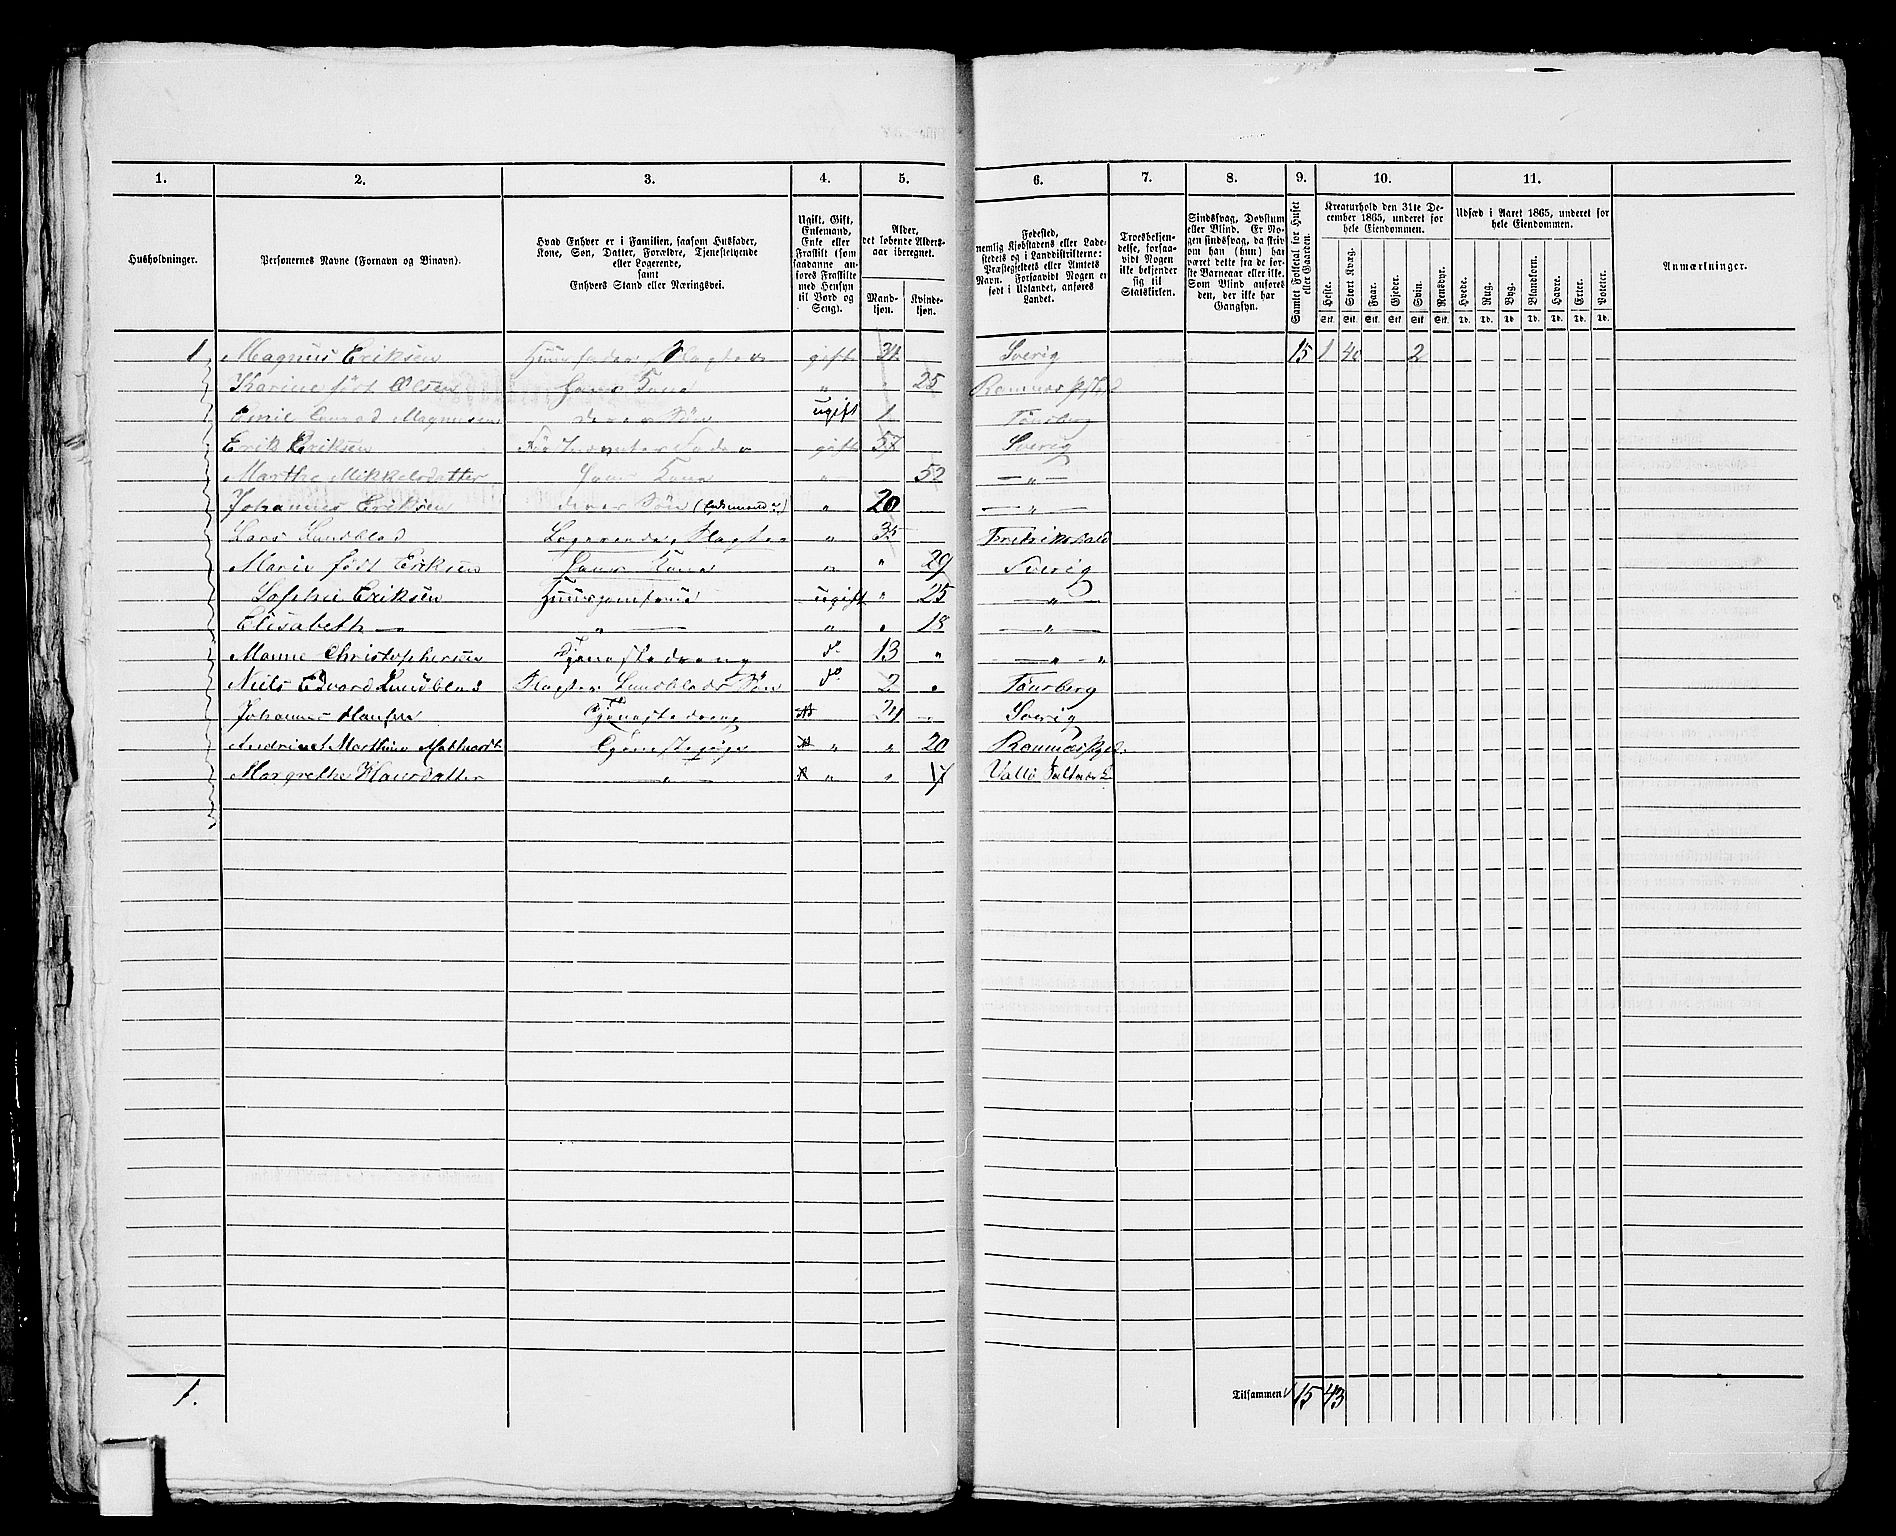 1. 2. 3. 4. 5. 6. 7. 8. 9. 10. 11.
Husholdninger.
Personernes Navne (Fornavn og Binavn).
Hvad Enhver er i Familien, saasom Husfader,
Kone, Søn, Datter, Forældre, Tjenestetyende
eller Logerende,
samt
Enhvers Stand eller Næringsvei.
Ugift, Gift,
Enkemand,
Enke eller
Fraskilt (som
saadanne an-
føres Fraskilte
med Hensyn
til Bord og
Seng).
Alder,
det løbende Alders-
aar iberegnet.
Mand-
kjøn.
Kvinde-
kjøn.
Fødested,
nemlig Kjøbstadens eller Lade-
stedets og i Landdistrikterne:
Præstegjeldets eller Amtets
Navn. Forsaavidt Nogen er
født i Udlandet, anføres
Landet.
Troesbekjen-
delse, forsaa-
vidt Nogen
ikke bekjender
sig til
Statskirken.
Sindssvag, Døvstum
eller Blind. Er No-
gen sindssvag, da skriv
om han (hun) har
været dette fra de før-
ste Barneaar eller ikke.
Som Blind anføres
den, der ikke har
Gangsyn.
Samlet Folketal for Huset
eller Gaarden.
Kreaturhold den 31te De-
cember 1865, underet for
hele Eiendommen.
Heste. Stort Kvæg. Faar. Gjeder. Svin. Rensdyr.
Stk. Stk. Stk. Stk. Stk. Stk.
Udsæd i Aaret 1865, underet for
hele Eiendommen.
Hvede. Rug. Byg. Blandkorn. Havre. Erter. Poteter.
Td. Td. Td. Td. Td. Td. Td.
Anmærkninger.
1 Magnus Eriksen Huusfader Slagter gift 34 Sverig 15 1 40 2
Karine født Olsen Hans Kone " 25 Ramnæs
Emil Conrad Magnusen deres Søn ugift 1 Tönsberg
Erik Eriksen Fader gift 57 Sverig
Marthe Mikkelsdatter Hans Kone " 52 — " —
Johannes Eriksen deres Søn " 20 — " —
Lars Lundblad Logerende, Slagter " 35 Fredrikshald
Marie født Eriksen Hans Kone " " 29 Sverig
Sophie Eriksen ugift " 25 — " —
Elisabeth — — " — " " 18 — " —
Christophersen Tjenestedreng do 13 " — " — "
Niels Edvard Lundblad Slagter Lundblads Søn do 2 " Tönsberg
Johannes Hansen Tjenestedreng Sverig
Mathine Tjenestepige " " 20 Ramnæs
Margrethe Hansdatter — " — " " 17 Vallö
1.
Tilsammen 15 43